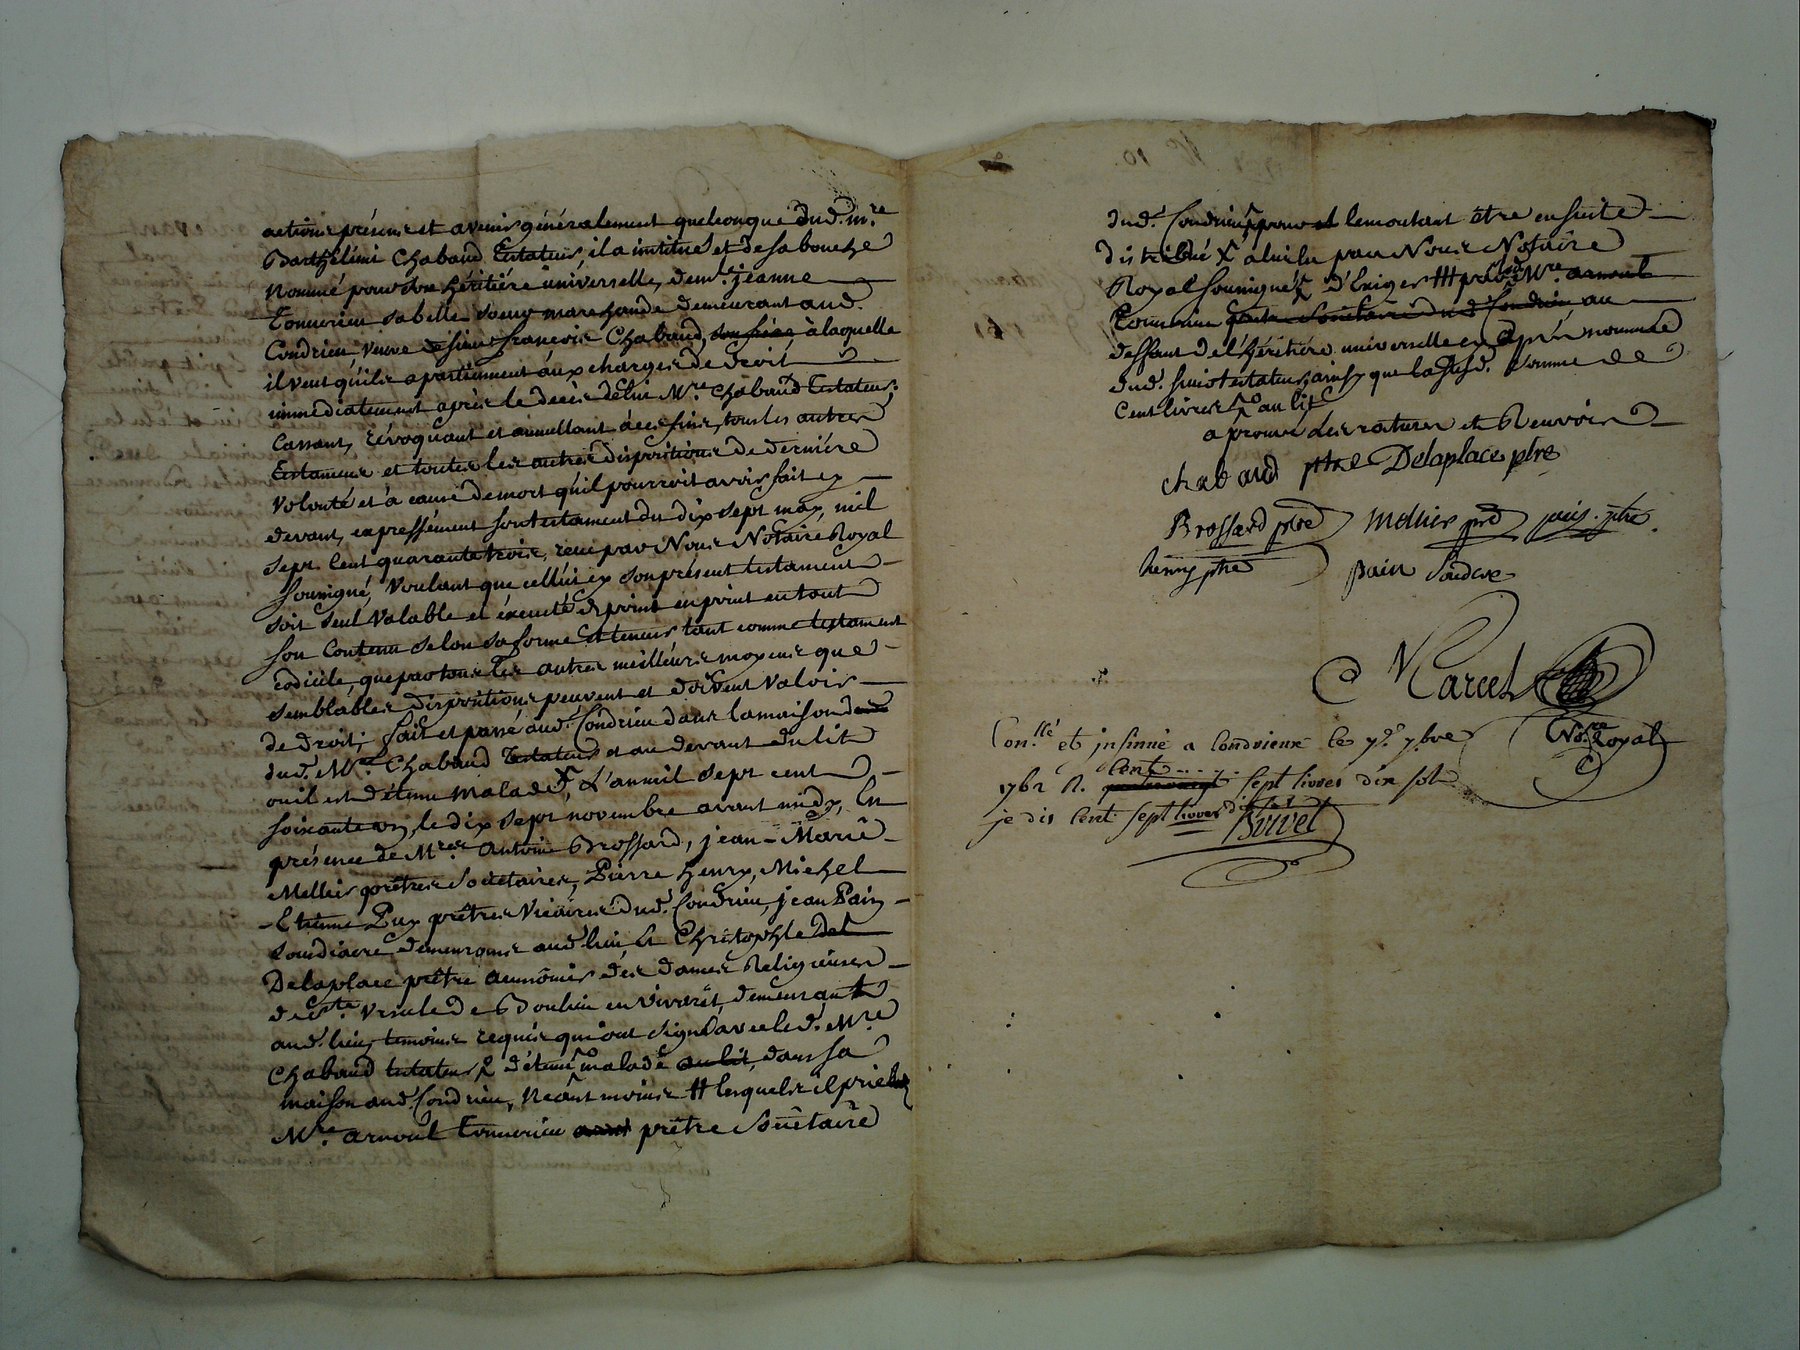 actions présens et avenir généralement quelconque dud. m.re
Barthélémi Chabaud Testateur, il a institué et de sa bouche
Nommé pour son héritiére universelle, dem.lle jeanne
Tonnerieu sa belle soeur marchande demeurant aud.
Condrieu, veuve de sieur francois Chabaud, son frére, à laquelle
il veut qu'ils apartiennent aux charges de droit
immédiatement après le decès de lui M.re Chabaud Testateur;
Cassant, révoquant et annullant à ces fins, tous les autres
Testamens et toutes les autres dispositions de derniére
Volonté et à cause de mort qu'il pourroit avoir fait cy
devant, expressément son testament du dix sept may, mil
sept cent quarante trois, reçu par Nous Notaire Royal
soussigné, Voulant que cellui cy son présent testament
soit seul valable et éxecuté de point en point en tout
son Contenu selon sa forme et teneur, tant comme testament
codicile, que par tous les autres meilleurs moyens que
semblables dispositions peuvent et doivent valoir
de droit; fait et passé aud. Condrieu dans la maison dud
dud. M.re Chabaud Testateur et au devant du lit
ou il est détenu malade, L'an mil sept cent
soixante un, le dix sept novembre avant midy, En
présence de M.res Antoine Brossard, jean-Marie
Mellier prêtres Sociétaires, Pierre henry, Michel
-Etienne Puy prêtres Vicaires dud. Condrieu, jean Pain
soudiacre demeurans aud. lieu et Christophle Del
Delaplace prêtre aumônier des dames Religieuses
de Ste. Ursule de Boulieu en vivarêt, demeurant
aud. lieu, temoins requis qui ont signé avec led. M.re
Chabaud testateur détenu malade au lit, dans sa
maison aud. Condrieu, Néantmoins # lesquels il prie
M.re arnoul Tonnerieu prêtre Sociétaire
dud. Condrieu pour le montant être ensuite
distribué à lui lu par Nous Notaire
Royal soussigné d'Exiger # par led. M.re arnoul
Tonnerieu prêtre Sociétaire dud. Condrieu au
deffaut de l'héritiére universelle cy après nommée
dud. sieur testateur, ainsy que la susd. somme de
cent livres au lit
aprouvé les ratures et Renvois
chabaud ptre Delaplace ptre
Brossard ptre Mellier ptre puis. ptre
henry ptre pain soudcre
Marcel
Not.re Royal
Con.llé et insinué a Condrieux le 7.e 7.bre
1762 R. cent.... sept livres dix sols
je dis cent sept livres dix sols
Buvet